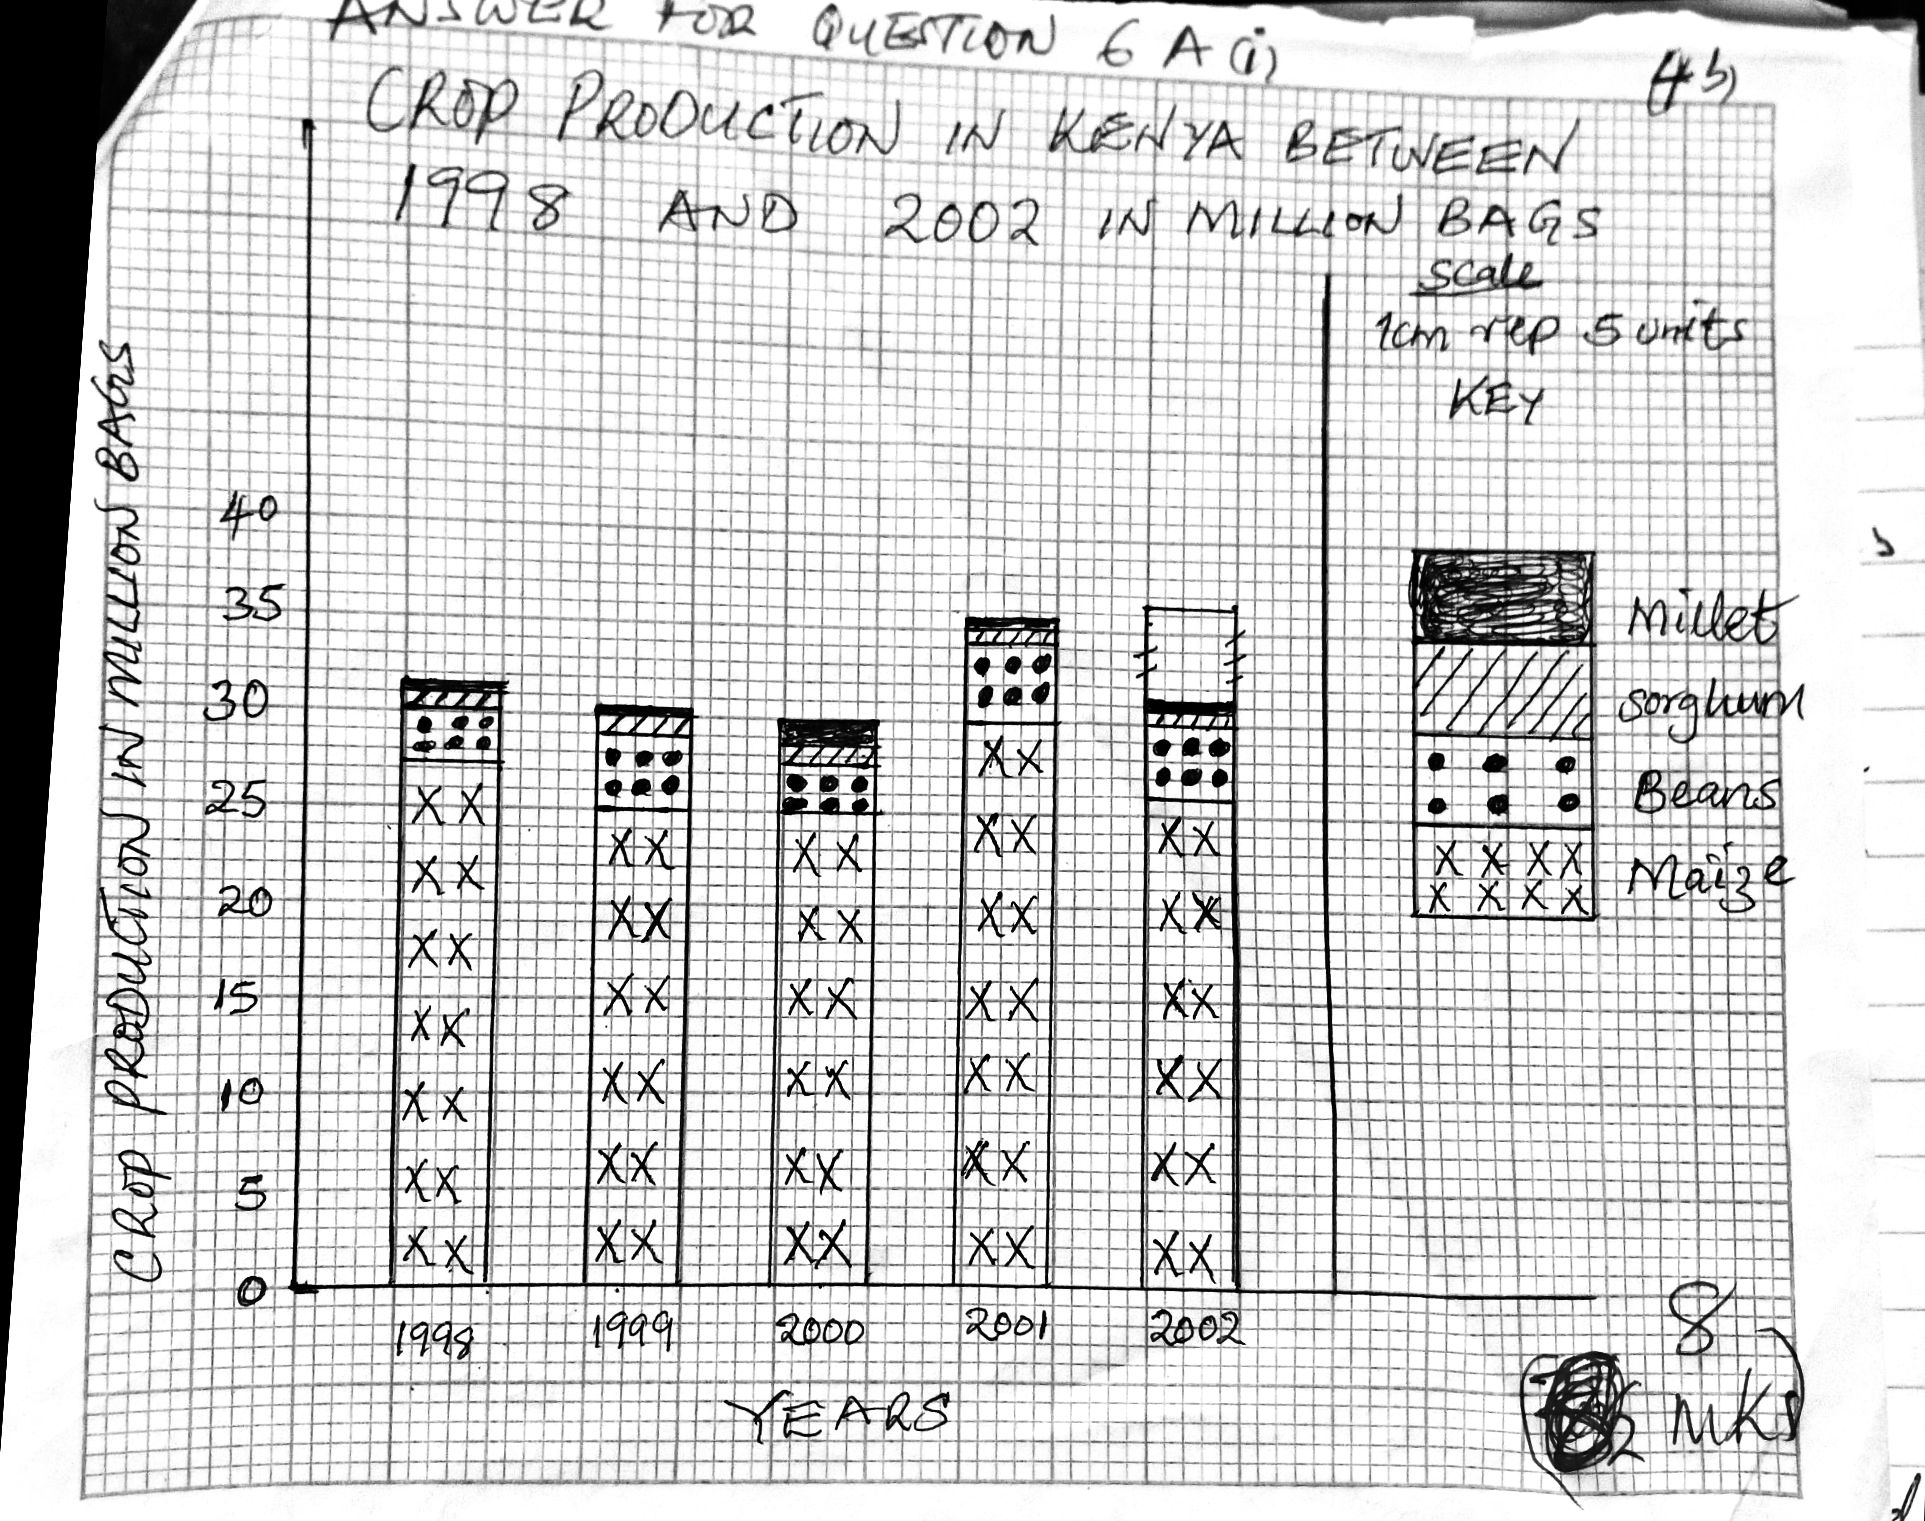 ANSWER FOR QUESTION 6 A (i)
(4b)
CROP PRODUCTION IN KENYA BETWEEN
1998 AND 2002 IN MILLION BAGS
scale
1cm rep 5 units
KEY
Millet
sorghum
Beans
Maize
CROP PRODUCTION IN MILLION BAGS
40
35
30
25
20
15
10
5
0
1998 1999 2000 2001 2002
YEARS
8
MKs